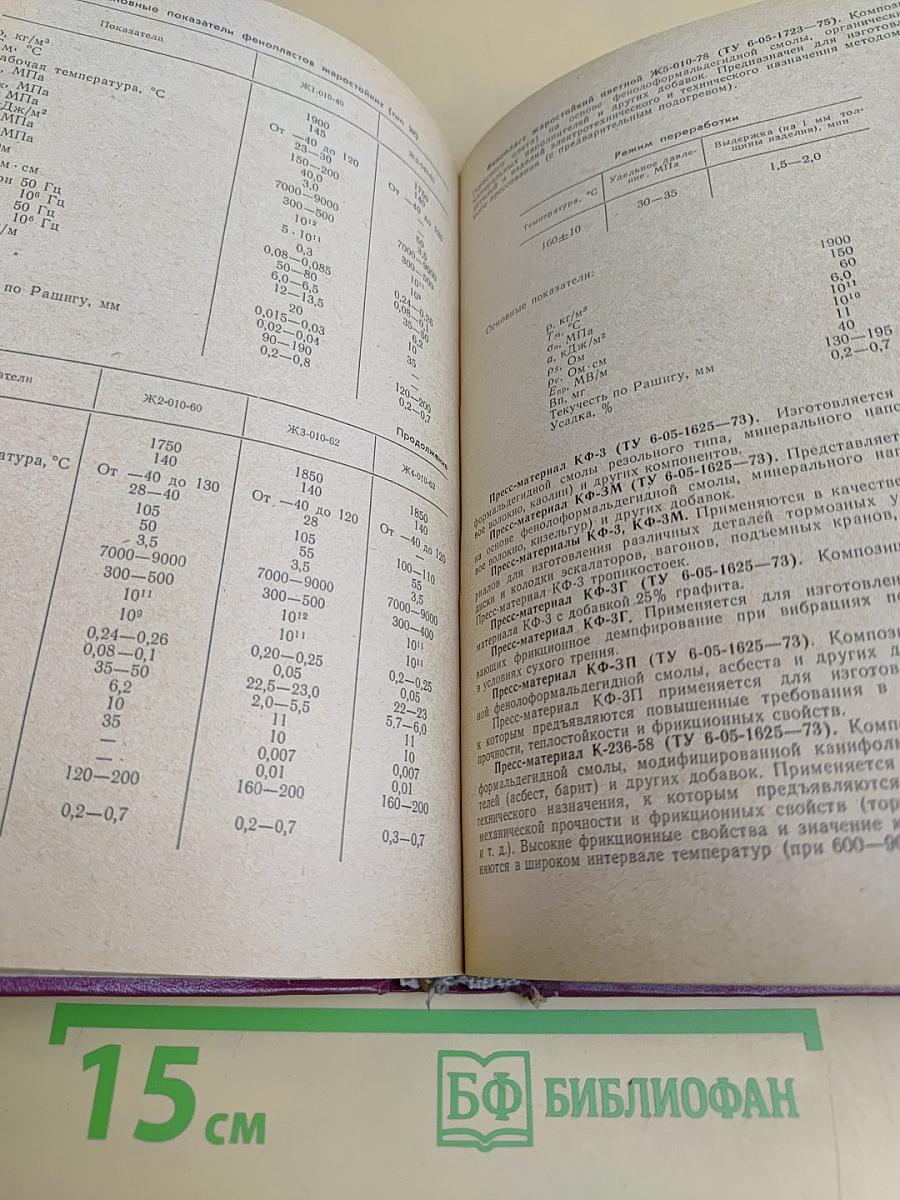 новные показатели фенопластов жаростойких (тип Ж)
Показатели
Ж1-010-40
ρ, кг/м³
°С
абочая температура, °С
МПа
МПа
МПа
кДж/м²
МПа
МПа
м
м·см
ри 50 Гц
10⁶ Гц
50 Гц
10⁶ Гц
/м
по Рашигу, мм
1900
145
От —40 до 120
23—30
150—200
40,0
3,0
7000—9000
300—500
10¹²
5·10¹¹
0,3
0,08—0,085
50—80
6,0—6,5
12—13,5
20
0,015—0,03
0,02—0,04
90—190
0,2—0,8
1750
140
От —40 до 130
—
50
3,5
7000—9000
300—500
10¹¹
10⁹
0,24—0,26
0,08—0,1
35—50
6,2
10
35
—
—
120—200
0,2—0,7
Продолжение
атели
Ж2-010-60
Ж3-010-62
Ж4-010-62
атура, °С
1750
140
От —40 до 130
28—40
105
50
3,5
7000—9000
300—500
10¹¹
10⁹
0,24—0,26
0,08—0,1
35—50
6,2
10
35
—
—
120—200
0,2—0,7
1850
140
От —40 до 120
28
105
55
3,5
7000—9000
300—500
10¹²
10¹¹
0,20—0,25
0,05
22,5—23,0
2,0—5,5
11
10
0,007
0,01
160—200
0,2—0,7
1850
140
От —40 до 120
100—110
55
3,5
7000—9000
300—400
10¹¹
10¹¹
0,2—0,25
0,05
22—23
5,7—6,0
11
10
0,007
0,01
160—200
0,3—0,7
Фенопласт жаростойкий цветной Ж5-010-78 (ТУ 6-05-1723—75). Композиц
цвета) на основе фенолоформальдегидной смолы, органически
минеральных наполнителей и других добавок. Предназначен для изготовл
деталей и изделий электротехнического и технического назначения методом
прессования (с предварительным подогревом).
Режим переработки
Температура, °С
Удельное давле-
ние, МПа
Выдержка (на 1 мм тол-
щины изделия), мин
160±10
30—35
1,5—2,0
Основные показатели:
ρ, кг/м³ 1900
Tм, °С 150
σи, МПа 60
a, кДж/м² 6,0
ρs, Ом 10¹¹
ρv, Ом·см 10¹⁰
Eпр, МВ/м 11
Вп, мг 40
Текучесть по Рашигу, мм 130—195
Усадка, % 0,2—0,7
Пресс-материал КФ-3 (ТУ 6-05-1625—73). Изготовляется
формальдегидной смолы резольного типа, минерального напо
вое волокно, каолин) и других компонентов.
Пресс-материал КФ-3М (ТУ 6-05-1625—73). Представляет
на основе фенолоформальдегидной смолы, минерального нап
вое волокно, кизельгур) и других добавок.
Пресс-материалы КФ-3, КФ-3М. Применяются в качестве
риалов для изготовления различных деталей тормозных у
диски и колодки эскалаторов, вагонов, подъемных кранов,
Пресс-материал КФ-3 тропикостоек.
Пресс-материал КФ-3Г (ТУ 6-05-1625—73). Композиц
материала КФ-3 с добавкой 25% графита.
Пресс-материал КФ-3Г. Применяется для изготовлен
вающих фрикционное демпфирование при вибрациях по
в условиях сухого трения.
Пресс-материал КФ-3П (ТУ 6-05-1625—73). Композ
ной фенолоформальдегидной смолы, асбеста и других д
Пресс-материал КФ-3П применяется для изготов
к которым предъявляются повышенные требования в
прочности, теплостойкости и фрикционных свойств.
Пресс-материал К-236-58 (ТУ 6-05-1625—73). Компо
формальдегидной смолы, модифицированной канифоль
телей (асбест, барит) и других добавок. Применяется
технического назначения, к которым предъявляются
механической прочности и фрикционных свойств (тор
и т. д.). Высокие фрикционные свойства и значение к
няются в широком интервале температур (при 600—90
15 см
БФ БИБЛИОФАН